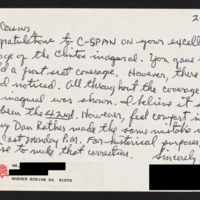 2
Collins
ongratulations to C-SPAN on your excelle
age of the Clinton inaugural. You gave
a front seat coverage. However, there
I noticed. All throughout the coverage
inaugural was shown. I believe it
been the 42nd. However, feel comfort in
y Dan Rather made the same mistake
Last Monday P.M. For historical purposes
se to make that correction.
Sincerely
WARNER ROBINS GA 31093